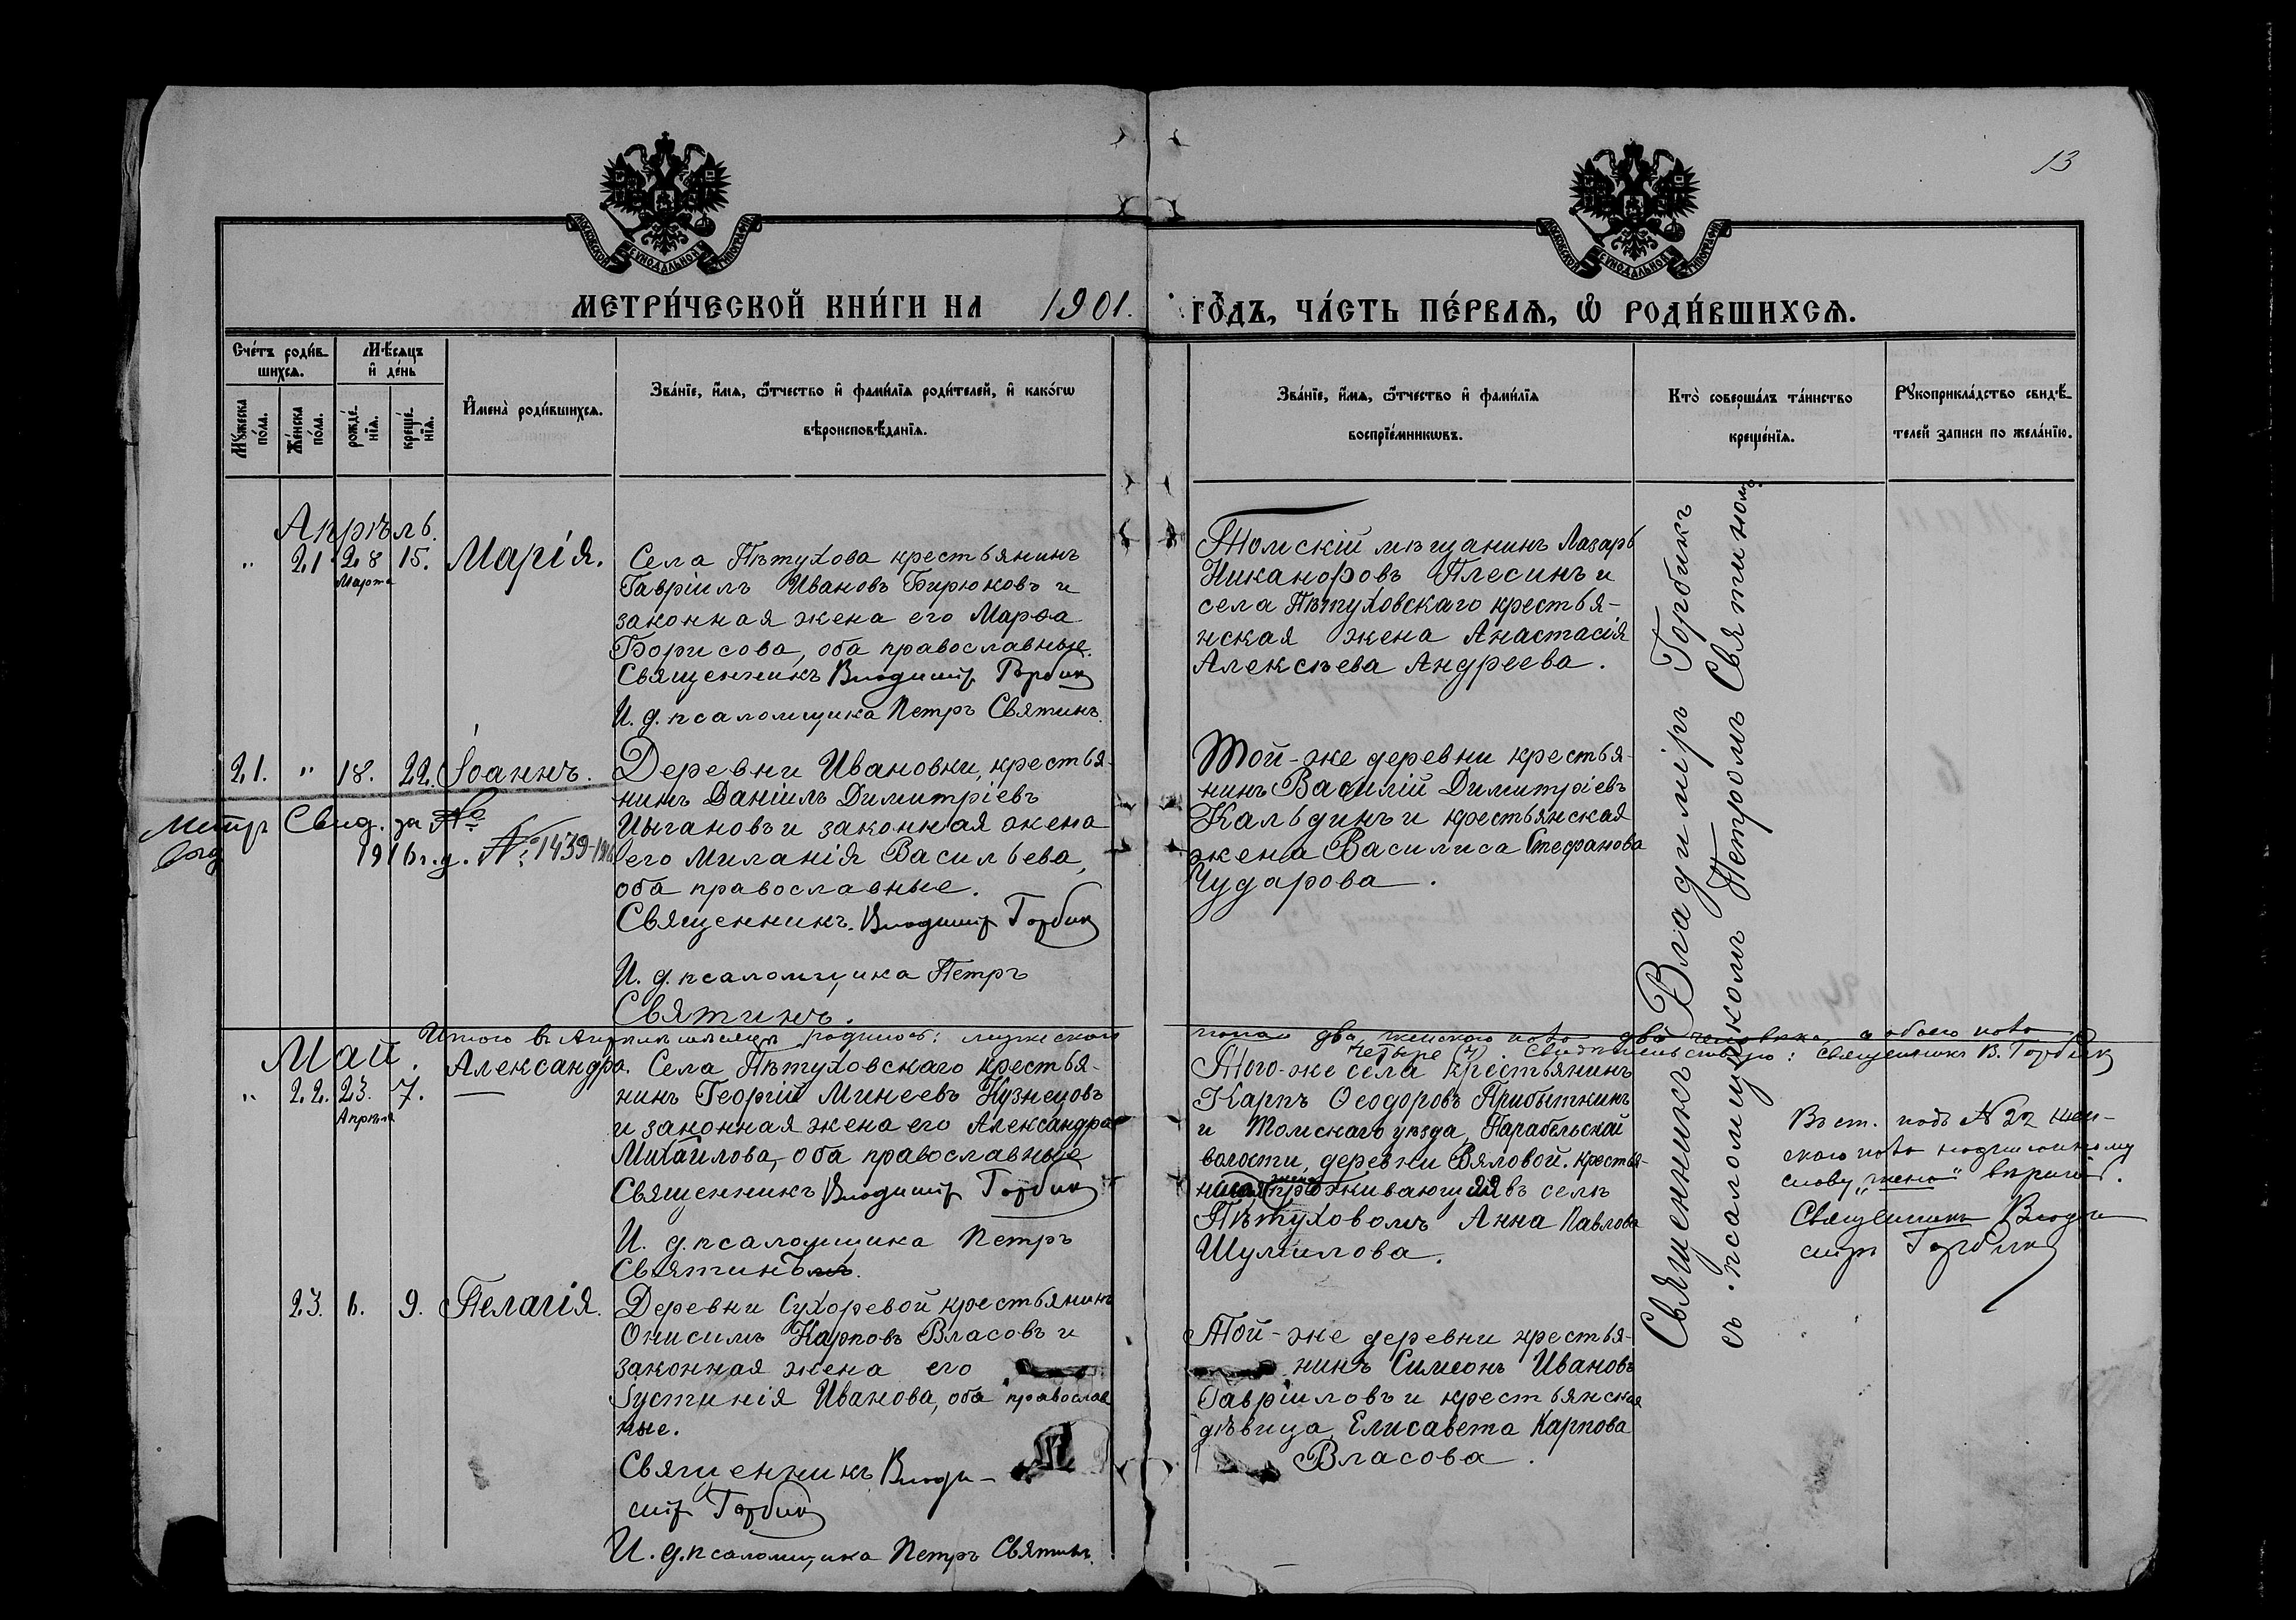 13
МОСКОВСКОЙ СѴНОДАЛЬНОЙ ТИПОГРАФІИ
МОСКОВСКОЙ СѴНОДАЛЬНОЙ ТИПОГРАФІИ
МЕТРИ́ЧЕСКОЙ КНИ́ГИ НА 1901. ГО́ДЪ, ЧА́СТЬ ПЕ́РВАѦ, Ѡ РОДИ́ВШИХСѦ.
Сче́тъ роди́в-
шихсѧ.
Мѣ́сѧцъ
и де́нь
Мꙋжеска по́ла.
Же́нска по́ла.
рожде́-
нїѧ.
креще́-
нїѧ.
Имена̀ роди́вшихсѧ.
Зва́нїе, и́мѧ, ѻ́тчество и фами́лїѧ роди́телей, и како́гѡ
вѣроисповѣ́данїѧ.
Зва́нїе, и́мѧ, ѻ́тчество и фами́лїѧ
воспрїе́мникѡвъ.
Кто̀ соверша́лъ та́инство
креще́нїѧ.
Рꙋкоприкла́дство свидѣ́-
телей записи по жела́нїю.
Апрѣль.
" 21 28 15. Марія.
Марта
Села Пѣтухова крестьянинъ
Гавріилъ Ивановъ Бирюковъ и
законная жена его Марѳа
Борисова, оба православные.
Священникъ Владиміръ Горбик
И. д. псаломщика Петръ Святинъ.
Томскій мѣщанинъ Лазарь
Никаноровъ Плесинъ и
села Пѣтуховскаго крестья-
нская жена Анастасія
Алексѣева Андреева.
21. " 18. 22. Іоаннъ.
Метр Свид. за №
1916 г. № 1439
Деревни Ивановки, крестья-
нинъ Даніилъ Димитріевъ
Цыгановъ и законная жена
его Миланія Васильева,
оба православные.
Священникъ. Владиміръ Горбик
И. д. псаломщика Петръ
Святинъ.
Той-же деревни крестья-
нинъ Василій Димитріевъ
Кальдинъ и крестьянская
жена Василиса Стефанова
Чударова.
Итого въ Апрѣлѣ мѣсяцѣ родилось: мужескаго
пола два, женскаго пола два человѣка, а обоего пола
четыре (4). Свидѣтельствую: священникъ В. Горбик
Май.
" 22. 23. 7. Александра.
Апрѣля
Села Пѣтуховскаго крестья-
нинъ Георгій Минеевъ Кузнецовъ
и законная жена его Александра
Михаилова, оба православные
Священникъ Владиміръ Горбик
И. д. псаломщика Петръ
Святинъ.
Того-же села крестьянинъ
Карпъ Ѳеодоровъ Прибыткинъ
и Томскаго уѣзда, Парабельской
волости, деревни Вяловой. крестья-
жена проживающая въ селѣ
Пѣтуховомъ Анна Павлова
Шумилова.
Въ ст. подъ № 22 жен-
скаго пола надписанному
слову „жена" вѣрить.
Священникъ Влади
миръ Горбик
23. 6. 9. Пелагія.
Деревни Сухоревой крестьянинъ
Онисимъ Карповъ Власовъ и
законная жена его
Іустинія Иванова, оба православ
ные.
Священникъ Влади-
міръ Горбик
И. д. псаломщика Петръ Святинъ.
Той-же деревни крестья-
нинъ Симеонъ Ивановъ
Гавріиловъ и крестьянская
дѣвица Елисавета Карпова
Власова.
Священникъ Владиміръ Горбикъ
съ псаломщикомъ Петромъ Святинымъ.